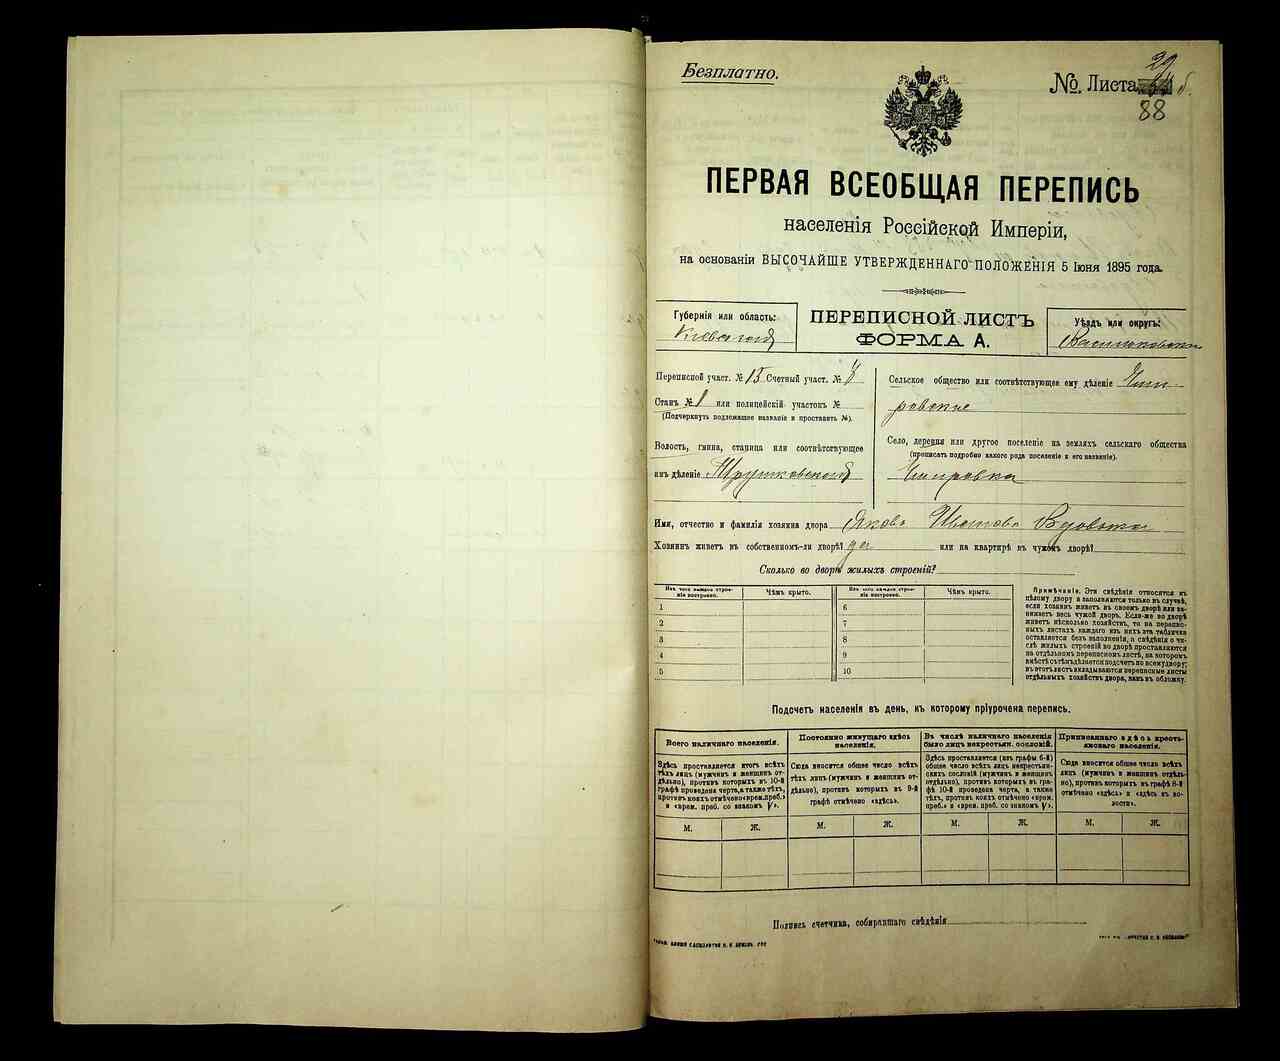 Безплатно.
№ Листа 29 б.
88
ПЕРВАЯ ВСЕОБЩАЯ ПЕРЕПИСЬ
населенія Россійской Имперіи,
на основаніи ВЫСОЧАЙШЕ УТВЕРЖДЕННАГО ПОЛОЖЕНІЯ 5 Іюня 1895 года.
Губернія или область:
Кіевской
ПЕРЕПИСНОЙ ЛИСТЪ
ФОРМА А.
Уѣздъ или округъ:
Васильковскій
Переписной участ. № 15 Счетный участ. №
Станъ № 1 или полицейскій участокъ №
(Подчеркнуть подлежащее названіе и проставить №).
Волость, гмина, станица или соотвѣтствующее
имъ дѣленіе Трушковской
Сельское общество или соотвѣтствующее ему дѣленіе Чепи-
ровское
Село, деревня или другое поселеніе на земляхъ сельскаго общества
(прописать подробно какого рода поселеніе и его названіе).
Имя, отчество и фамилія хозяина двора Яковъ Ивановъ
Хозяинъ живетъ въ собственномъ-ли дворѣ? да или на квартирѣ въ чужомъ дворѣ?
Сколько во дворѣ жилыхъ строеній?
Изъ чего каждое строе-
ніе построено.
Чѣмъ крыто.
1
2
3
4
5
Изъ чего каждое строе-
ніе построено.
Чѣмъ крыто.
6
7
8
9
10
Примѣчаніе. Эти свѣдѣнія относятся къ
цѣлому двору и заполняются только въ случаѣ,
если хозяинъ живетъ въ своемъ дворѣ или за-
нимаетъ весь чужой дворъ. Если-же во дворѣ
живетъ нѣсколько хозяйствъ, то на перепис-
ныхъ листахъ каждаго изъ нихъ эта табличка
оставляется безъ заполненія, а свѣдѣнія о чи-
слѣ жилыхъ строеній во дворѣ проставляются
на отдѣльномъ переписномъ листѣ, на которомъ
вмѣстѣ съ тѣмъ дѣлается подсчетъ по всему двору;
въ этотъ листъ вкладываются переписные листы
отдѣльныхъ хозяйствъ двора, какъ въ обложку.
Подсчетъ населенія въ день, къ которому пріурочена перепись.
Всего наличнаго населенія.
Здѣсь проставляется итогъ всѣхъ
тѣхъ лицъ (мужчинъ и женщинъ от-
дѣльно), противъ которыхъ въ 10-й
графѣ проведена черта, а также тѣхъ,
противъ коихъ отмѣчено «врем. преб.»
и «врем. преб. со знакомъ V».
М. Ж.
Постоянно живущаго здѣсь
населенія.
Сюда вносится общее число всѣхъ
тѣхъ лицъ (мужчинъ и женщинъ от-
дѣльно), противъ которыхъ въ 9-й
графѣ отмѣчено «здѣсь».
М. Ж.
Въ числѣ наличнаго населенія
было лицъ некрестьян. сословій.
Здѣсь проставляется (изъ графы 6-й)
общее число всѣхъ лицъ некрестьян-
скихъ сословій (мужчинъ и женщинъ
отдѣльно), противъ которыхъ въ гра-
фѣ 10-й проведена черта, а также
тѣхъ, противъ коихъ отмѣчено «врем.
преб.» и «врем. преб. со знакомъ V».
М. Ж.
Приписаннаго здѣсь кресть-
янскаго населенія.
Сюда вносится общее число всѣхъ
лицъ (мужчинъ и женщинъ отдѣль-
но), противъ которыхъ въ графѣ 8-й
отмѣчено «здѣсь» и «здѣсь въ во-
лости».
М. Ж.
Подпись счетчика, собиравшаго свѣдѣнія